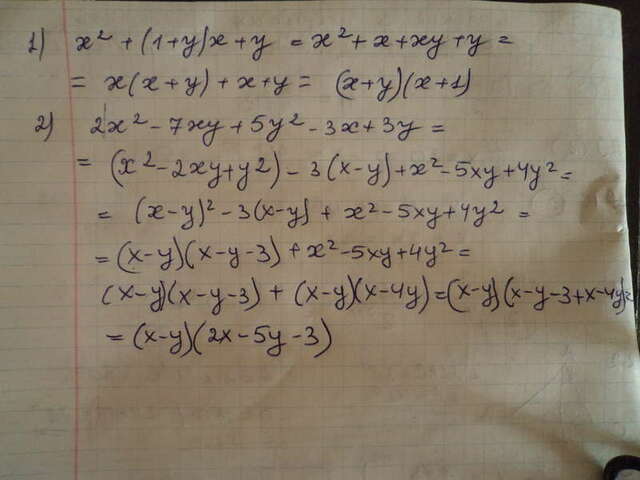 1) x² + (1+y)x + y = x² + x + xy + y =
= x(x+y) + x+y = (x+y)(x+1)
2) 2x² - 7xy + 5y² - 3x + 3y =
= (x² - 2xy + y²) - 3(x-y) + x² - 5xy + 4y² =
= (x-y)² - 3(x-y) + x² - 5xy + 4y² =
= (x-y)(x-y-3) + x² - 5xy + 4y² =
(x-y)(x-y-3) + (x-y)(x-4y) = (x-y)(x-y-3+x-4y) =
= (x-y)(2x-5y-3)